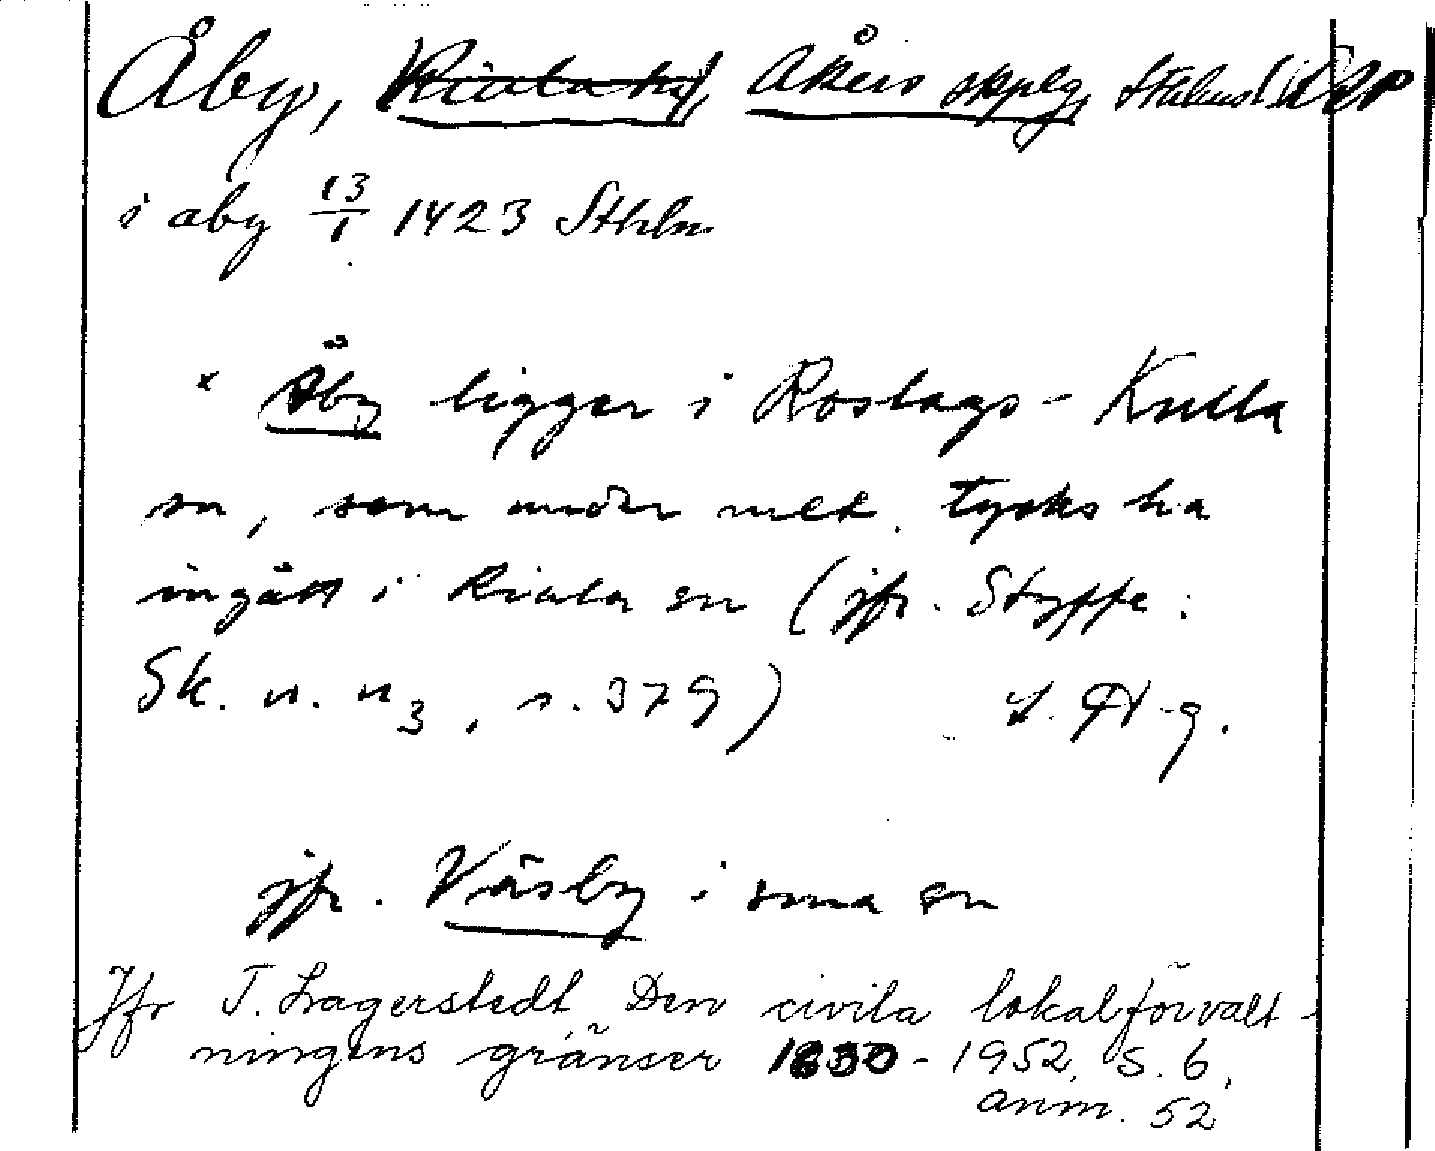 Åby, Riala sn, Åkers skplg, Sthlms län
i aby 13/1 1423 Sthlm
x Åby ligger i Roslags-Kulla
sn, som under met. tycks ha
ingått i Riala sn (jfr. Styffe:
Sk. u. u 3, s. 379)
jfr. Väsby i sma sn
Jfr T. Lagerstedt, Den civila lokalförvalt-
ningens gränser 1630-1952, s. 6,
anm. 52